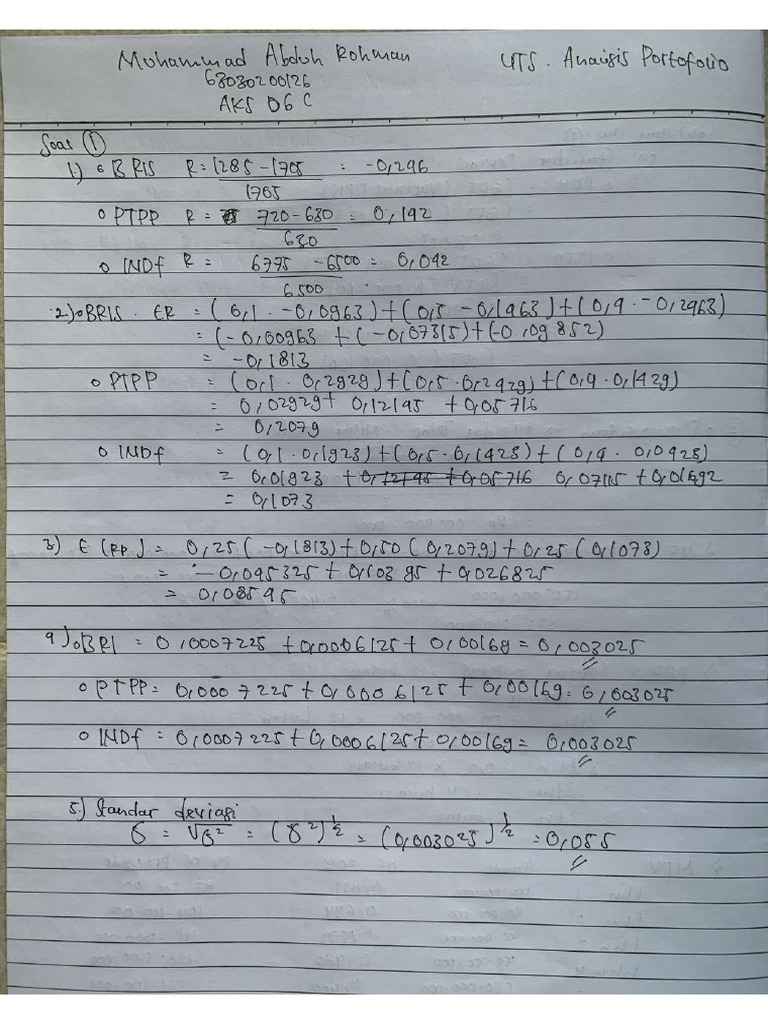 Mohammad Abduh Rohman UTS. Analisis Portofolio
63030200126
AKS 06 C
Soal ①
1) o BRIS R = 1285 - 1705 = -0,246
1705
o PTPP R = 720 - 630 = 0,142
630
o INDf R = 6775 - 6500 = 0,042
6.500
2) o BRIS. ER = (0,1 . -0,0963) + (0,5 - 0,1463) + (0,4 . -0,2463)
= (-0,00963 + (-0,07315) + (-0,09852)
= -0,1813
o PTPP = (0,1 . 0,2929) + (0,5 . 0,2429) + (0,4 . 0,1429)
= 0,02929 + 0,12145 + 0,05716
= 0,2079
o INDf = (0,1 . 0,1923) + (0,5 . 0,1423) + (0,4 . 0,0423)
= 0,01923 + 0,12145 + 0,05716 0,07115 + 0,01692
= 0,1073
3) E (RP) = 0,25 (-0,1813) + 0,50 (0,2079) + 0,25 (0,1073)
= -0,045325 + 0,10395 + 0,026825
= 0,08545
4) o BRI = 0,0007225 + 0,0006125 + 0,00169 = 0,003025
o PTPP = 0,0007225 + 0,0006125 + 0,00169 = 0,003025
o INDf = 0,0007225 + 0,0006125 + 0,00169 = 0,003025
5.) Standar deviasi
σ = √σ² = (σ²)½ = (0,003025)½ = 0,055